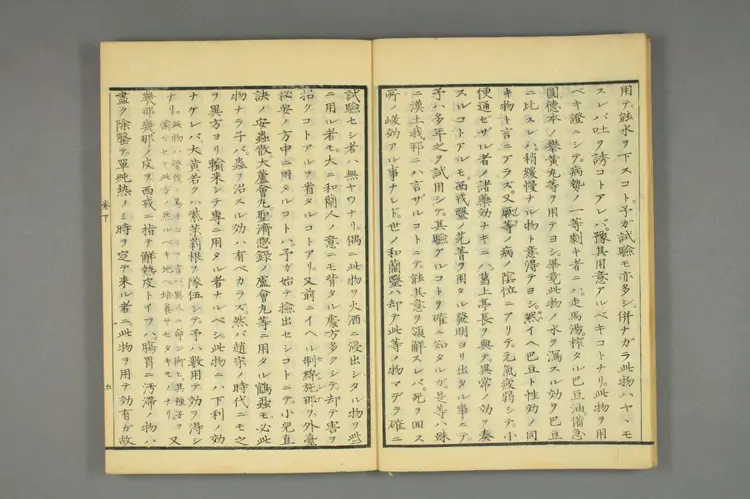 用テ能水ヲ下スコト予ガ試驗モ亦多シ併ナガラ此物ハヤヽモ
スレバ吐ヲ誘コトアレバ豫其用意アルベキコトナリ此物ヲ用
ベキ證ニシテ病勢ノ一等劇キ者ニハ走馬湯搾タル巴豆油備急
圓徳本ノ黄丸等ヲ用テヨシ畢竟此物ノ水ヲ瀉スル効ヲ巴豆
ニ比スレバ稍緩慢ナル物ト意得テヨシ然トヘ巴豆ト性効ノ同
キ物ト言ニアラズ又等ノ病ノ陰位ニアリテ元氣疲弱シテ小
便通セザル者ノ諸藥効ナキニハ葛上亭長ヲ與テ異常ノ効ヲ奏
スルコトアルモ西我醫ノ芫菁ヲ用タル發明ヨリ出タル事ニテ
予ハ多年之ヲ試用シテ其驗アルコトヲ確ニ知タルガ是等ハ殊
ニ漢土我邦ニハ言ザルコトニテ能其意ヲ領解スレバ死ヲ回ス
所ノ峻効アル事ナレド世ノ和蘭醫ハ却テ此等ノ物マデヲ確ニ
試驗セシ者ハ無ヤウナリ偶ニ此物ヲ火酒ニ浸出シタル物ヲ此
ニ用ル者モ大ニ和蘭人ノ意ニモ背タル處方多クシテ却テ害ヲ
招クコトアルヲ省タルコトアリ又前ニイヘル制綿施那ヲ外臺
秘要ノ方中ニ用タルコトハ予ガ始テ撿出セシコトニテ小兒直
訣ノ安蟲散大蘆薈丸聖濟總録ノ蘆薈丸等ニ用タル鶴蝨モ必此
物ナラ子バ蟲ヲ治スル効ハ有ベカラズ然バ趙宋ノ時代ニモ之
ヲ異方ヨリ輸來シテ專ニ用タル者ナルベシ此物ニハ下利ノ効
ナケレバ大黄若クハ紫茉莉根ヲ隊伍シテ予ハ數用テ効ヲ得シ
ナリ
又
幾那幾那ノ皮ヲ西我ニ指テ解熱皮トイフハ腸胃ニ汚滯ノ物ハ
盡ク除盤テ單此熱ノミ時ヲ定テ來ル者ニ此物ヲ用テ効有ガ故
巻下
五